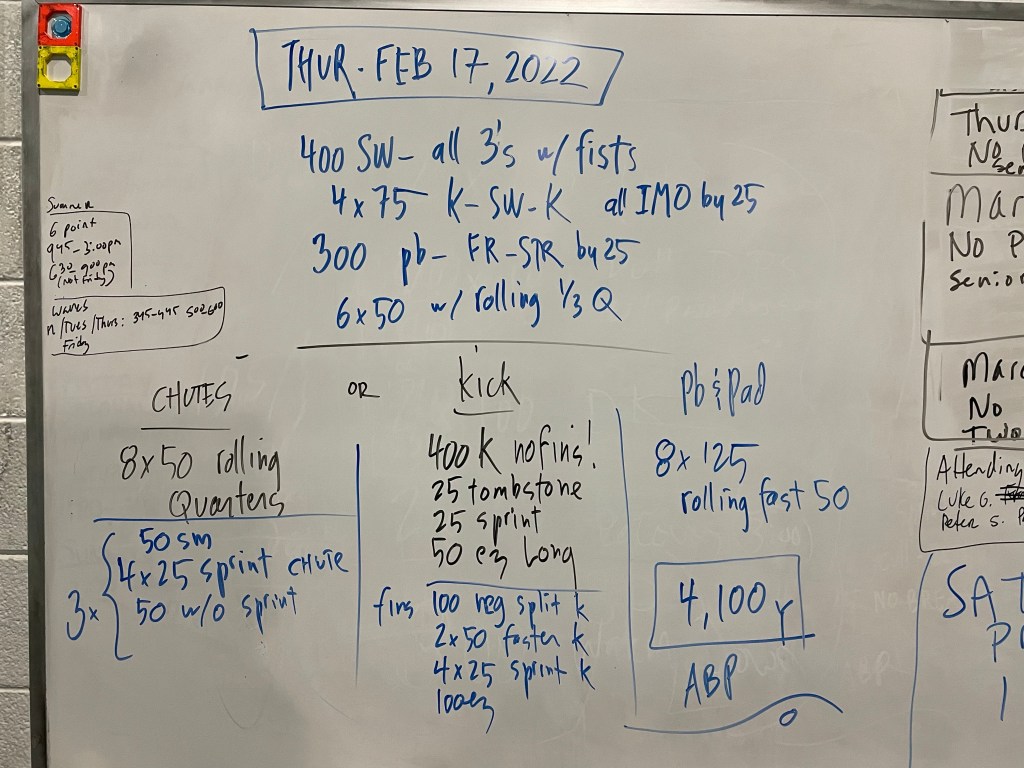 THUR. FEB 17, 2022
400 SW- all 3's w/ fists
4x75 K-SW-K all IMO by 25
300 pb- FR-STR by 25
6x50 w/ rolling 1/3 Q
Summer
6 point
945-3:00pm
(not Friday)
Waves
/Tues/Thurs: 345-445 500-600
Friday
CHUTES
8x50 rolling
Quarters
3x
50 sm
4x25 sprint CHUTE
50 w/o sprint
OR
Kick
400 K no fins!
25 tombstone
25 sprint
50 ez Long
fins 100 neg split k
2x50 faster k
4x25 sprint k
100ez
Pb & Pad
8x125
rolling fast 50
4,100 Y
ABP
Thurs
No
Mar
No P
Senior
Marc
No
Two
Attending
Luke G.
Peter S.
SAT
P
1